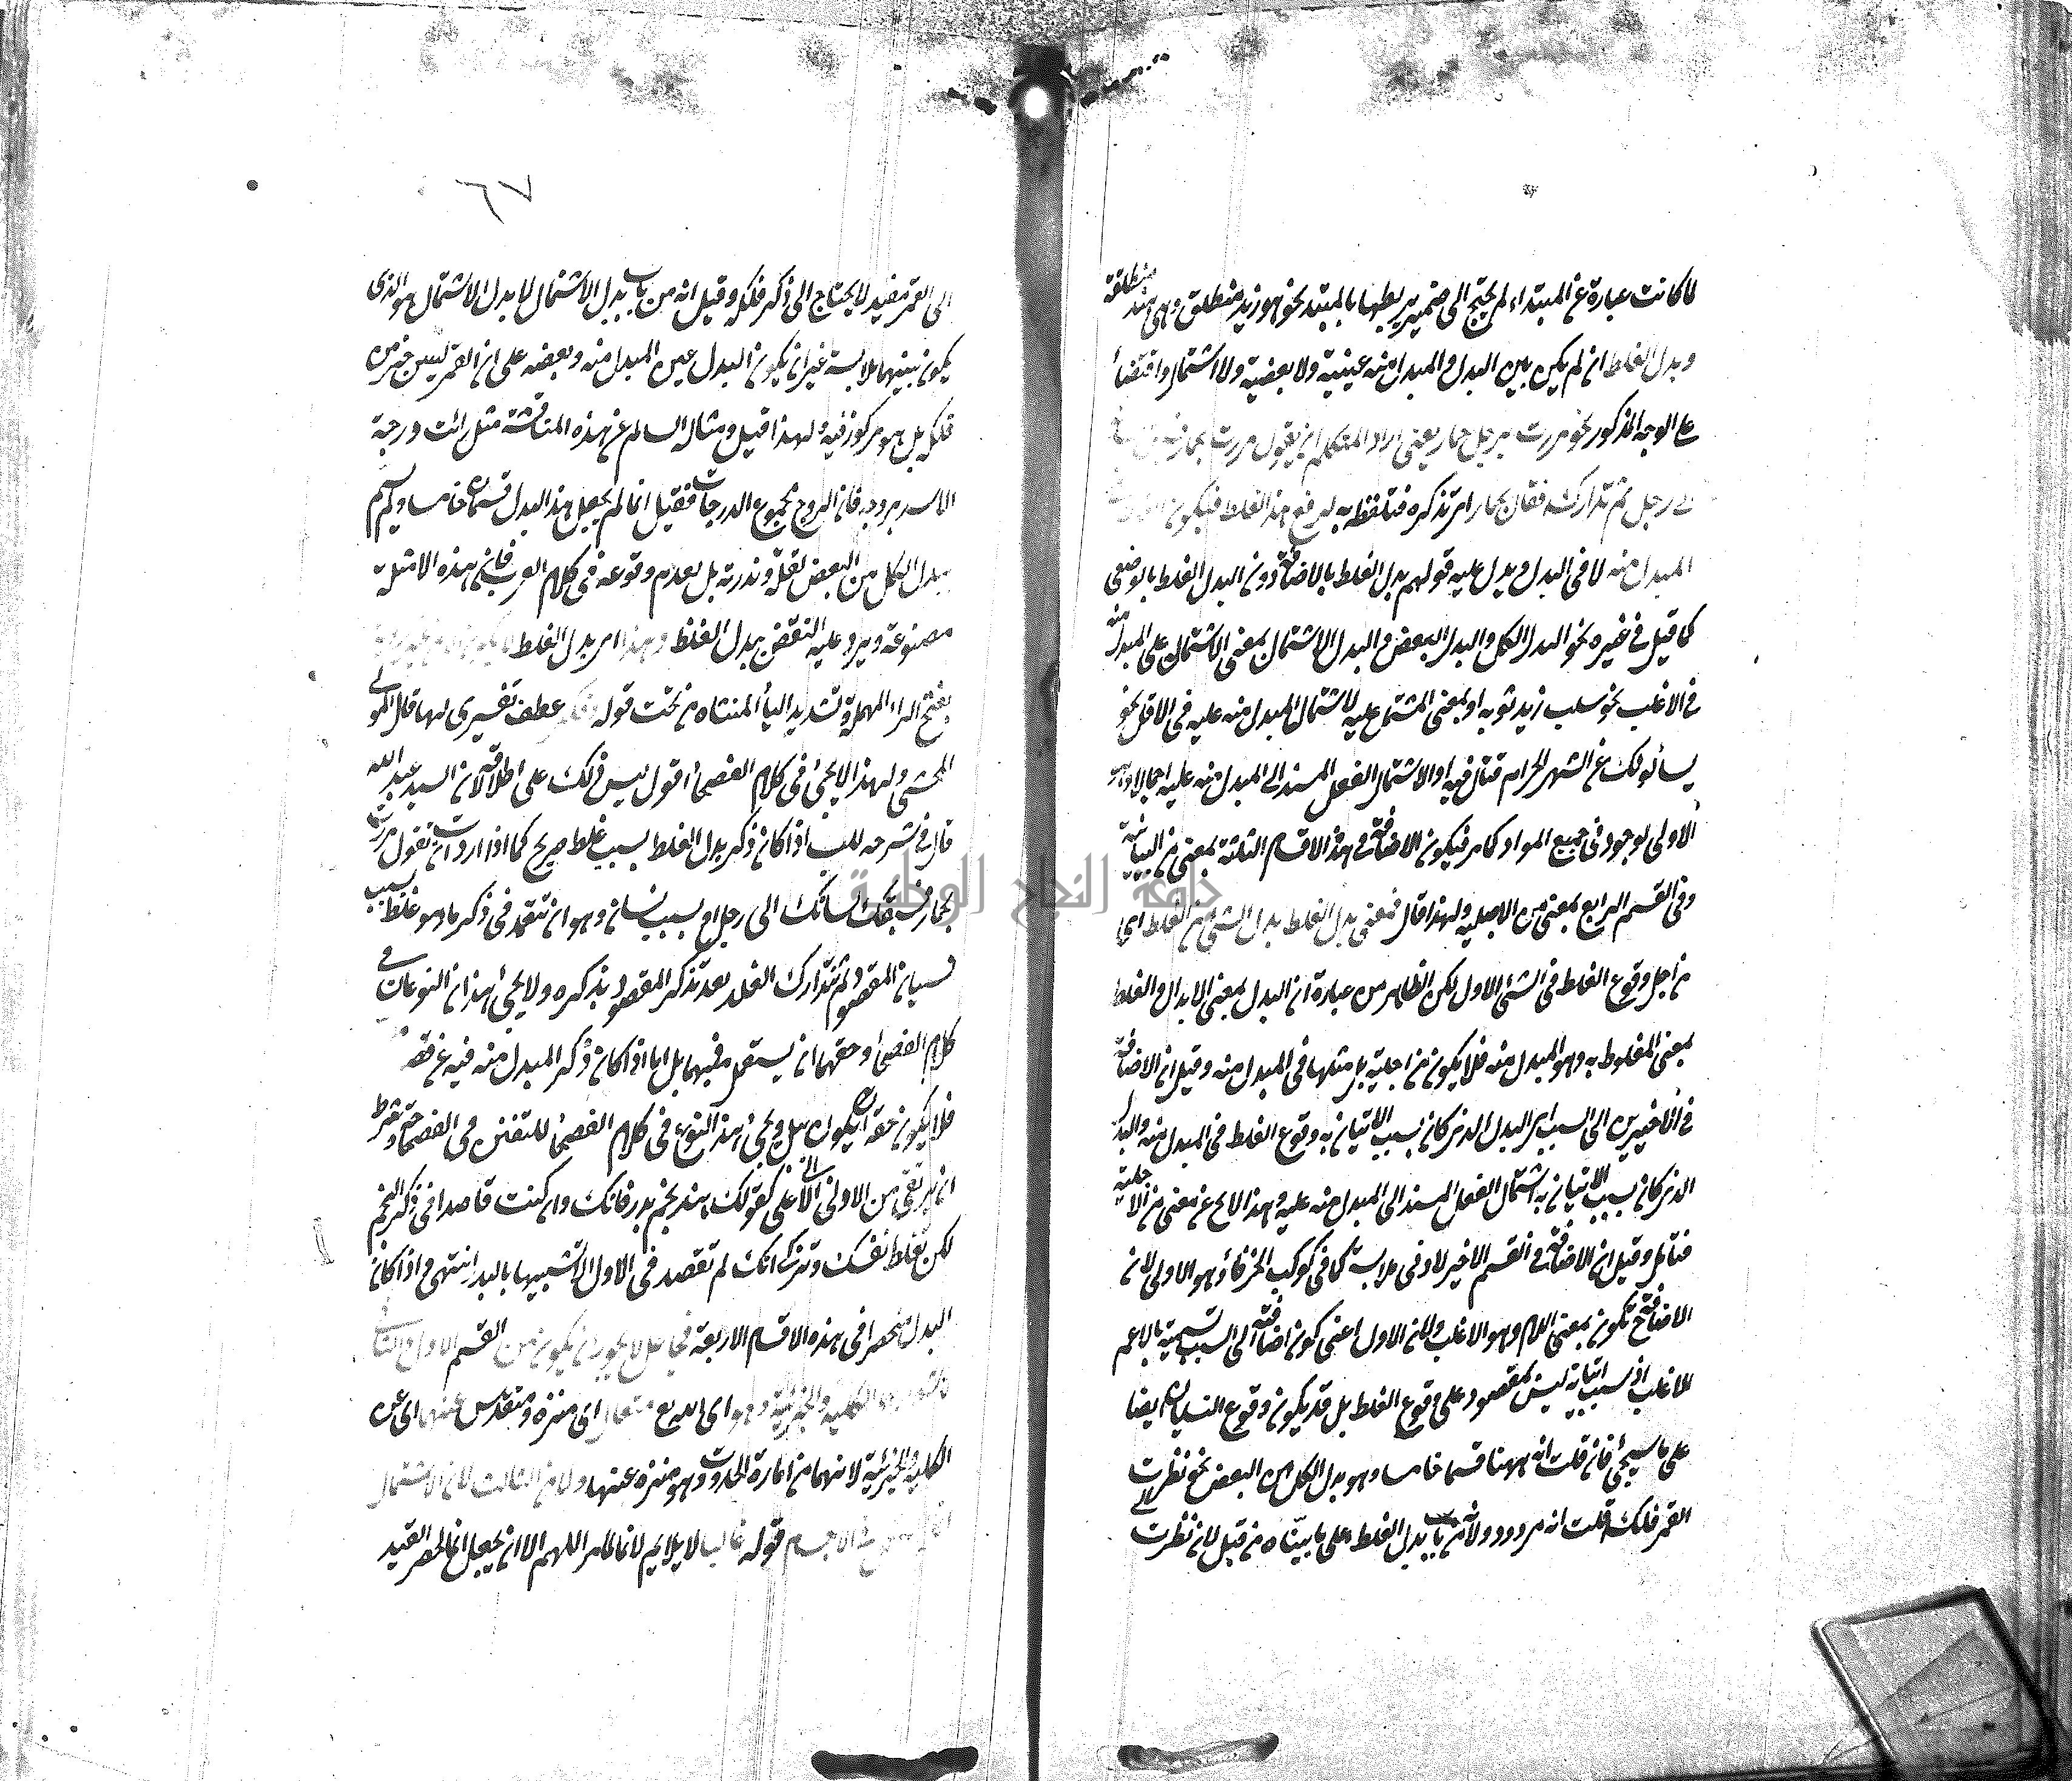 لما كانت عبارة عن المبتداء لم يحتج الى ضمير يربطها بالمبتدا نحو هو زيد منطلق وهى هند منطلقة
وبدل الغلط ان لم يكن بين البدل والمبدل منه عينية ولا بعضية ولا اشتمال واقتضأ
على الوجه المذكور نحو مررت برجل حمار يعنى اراد المتكلم ان يقول مررت بحمار
رجل ثم تداركه فقال بحمار اى تذكره فتلفظ به ليرفع هذا الغلط فيكون
المبدل منه لا فى البدل ويدل عليه قولهم بدل الغلط بالاضافة دون البدل الغلط بالوصفى
كما قيل فى غيره نحو البدل الكل والبدل البعض والبدل الاشتمال بمعنى الاشتمال على المبدل منه
فى الاغلب نحو سلب زيد ثوبه او بمعنى المشتمل عليه لاشتمال المبدل منه عليه فى الاقل نحو
يسألونك عن الشهر الحرام قتال فيه او لاشتمال الفعل المسند الى المبدل منه عليه اجمالا وهو
الاولى لوجود فى جميع المواد كما مر فيكون الاضافة فى هذا الاقسام الثلثة بمعنى من البيانية
وفى القسم الرابع بمعنى من الاجلية ولهذا قال فمعنى بدل الغلط بدل الشئ من الغلط اى
من اجل وقوع الغلط فى الشئ الاول لكن الظاهر من عبارة ان البدل بمعنى الابدال والغلط
بمعنى المغلوط به وهو المبدل منه فلا يكون من اجلية بل مثلها فى المبدل منه وقيل ان الاضافة
فى الاخيرين الى السبب اى البدل الذى كان بسبب الاتيان به وقوع الغلط فى المبدل منه والبدل
الذى كان بسبب الاتيان به اشتمال الفعل المسند الى المبدل منه عليه وهذا لا يخ عن معنى من الاجلية
فتأمل وقيل ان الاضافة فى القسم الاخير لادنى ملابسة كما فى كوكب الخرقاء وهو الاولى لان
الاضافة ح تكون بمعنى اللام وهو الاغلب ولان الاول اعنى كون اضافة الى السبب تسمية بالاعم
الاغلب اذ سبب اتيانه ليس بمقصود على وقوع الغلط بل قد يكون وقوع النسيان ايضا
على ما سيجئ فان قلت انه ههنا قسما خامسا وهو بدل الكل من البعض نحو نظرت الى
القمر فلكه قلت انه مردود ولانه من باب بدل الغلط على ما بيناه من قبل لان نظرت
٦٧
الى القمر مفيد لا يحتاج الى ذكر فلكه وقيل انه من باب بدل الاشتمال اذ بدل الاشتمال هو الذى
يكون بينهما ملابسة غير ان يكون البدل عين المبدل منه وبعضه على ان القمر ليس جزء من
فلكه بل هو مركوز فيه ولهذا قيل ومثال السالم عن هذه المناقشة مثل رائت درجة
الاسد بروجه فان البروج مجموع الدرجات فقيل انما لم يجعل هذا البدل قسما خامسا ولم يسم
ببدل الكل من البعض لقلة وندرته بل لعدم وقوعه فى كلام العرب فان هذه الامثلة
مصنوعة ويرد عليه النقض ببدل الغلط وهذا اى بدل الغلط
بفتح الراء المهملة وتشديد اليأ المنتاه من تحت قوله عطف تفسيرى لها قال المولى
المحشى ولهذا لا يجئ فى كلام الفصحأ اقول ليس ذلك على اطلاقه لان السيد عبد الله
قال فى شرحه للب اذا كان ذكر بدل الغلط بسبب غلط صريح كما اذا اردت ان تقول مررت
بحمار فسبقك لسانك الى رجل او بسبب نسيان وهو ان تتعمد فى ذكر ما هو غلط بسبب
نسيان المقصود ثم تتدارك الغلط بعد تذكر المقصود بذكره ولا يجئ هذان النوعان فى
كلام الفصحأ وحقهما ان يستعمل فيهما بل اما اذا كان ذكر المبدل منه فيه عن قصد
فلا يكون حقه ان يكون ببل ويجئ هذا النوع فى كلام الفصحأ للتفنن فى الفصاحة وشرط
ان يرتقى من الاولى الى الاعلى كقولك هند نجم بدر فانك وان كنت قاصدا فى ذكر النجم
لكن تغلط نفسك وترى انك لم تقصد فى الاول الا تشبيهها بالبدر انتهى واذا كان
البدل منحصرا فى هذه الاقسام الاربعة لا يجوز ان يكون من القسم الاول والثانى
الكلية والجزئية وهو اى البديع متعال اى منزه ومتقدس عنهما اى عن
الكلية والجزئية لانهما من امارة الحدوث وهو منزه عنها ولا من الثالث لان الاشتمال
الاجسام قوله غالبا لا يلايم لانما الحصر اللهم الا ان يجعل انما لحصر القيد
جامعة النجاح الوطنية